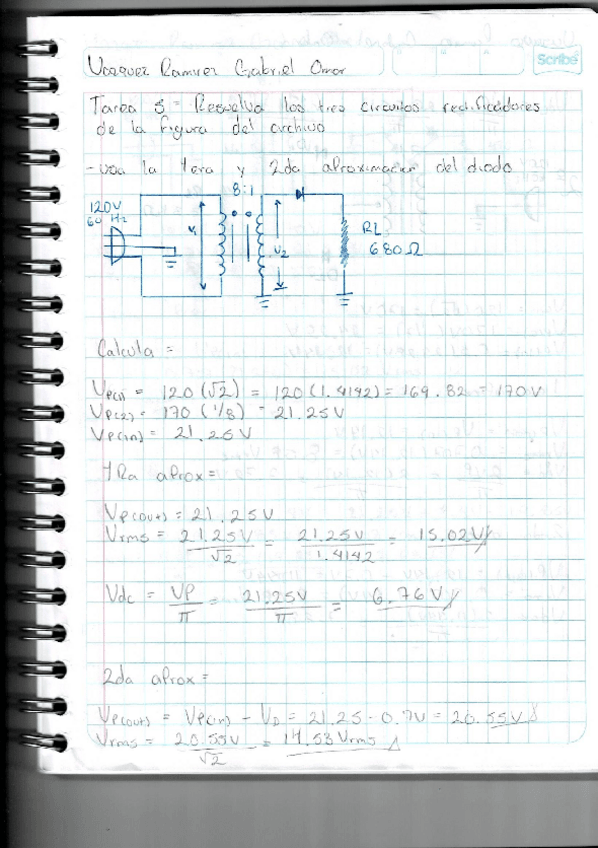 Vazquez Ramirez Gabriel Omar
Scribe
Tarea 3 = Resuelva los tres circuitos rectificadores
de la figura del archivo
- usa la 1era y 2da aproximacion del diodo
8:1
120V
60 Hz
V1
V2
RL
680Ω
Calcula =
Vp(1) = 120 (√2) = 120 (1.4142) = 169.82 = 170V
Vp(2) = 170 (1/8) = 21.25V
Vp(in) = 21.25V
1Ra aprox =
Vp(out) = 21.25V
Vrms = 21.25V/√2 = 21.25V/1.4142 = 15.02V
Vdc = VP/π = 21.25V/π = 6.76V
2da aprox =
Vp(out) = Vp(in) - VD = 21.25 - 0.7V = 20.55V
Vrms = 20.55V/√2 = 14.53 Vrms